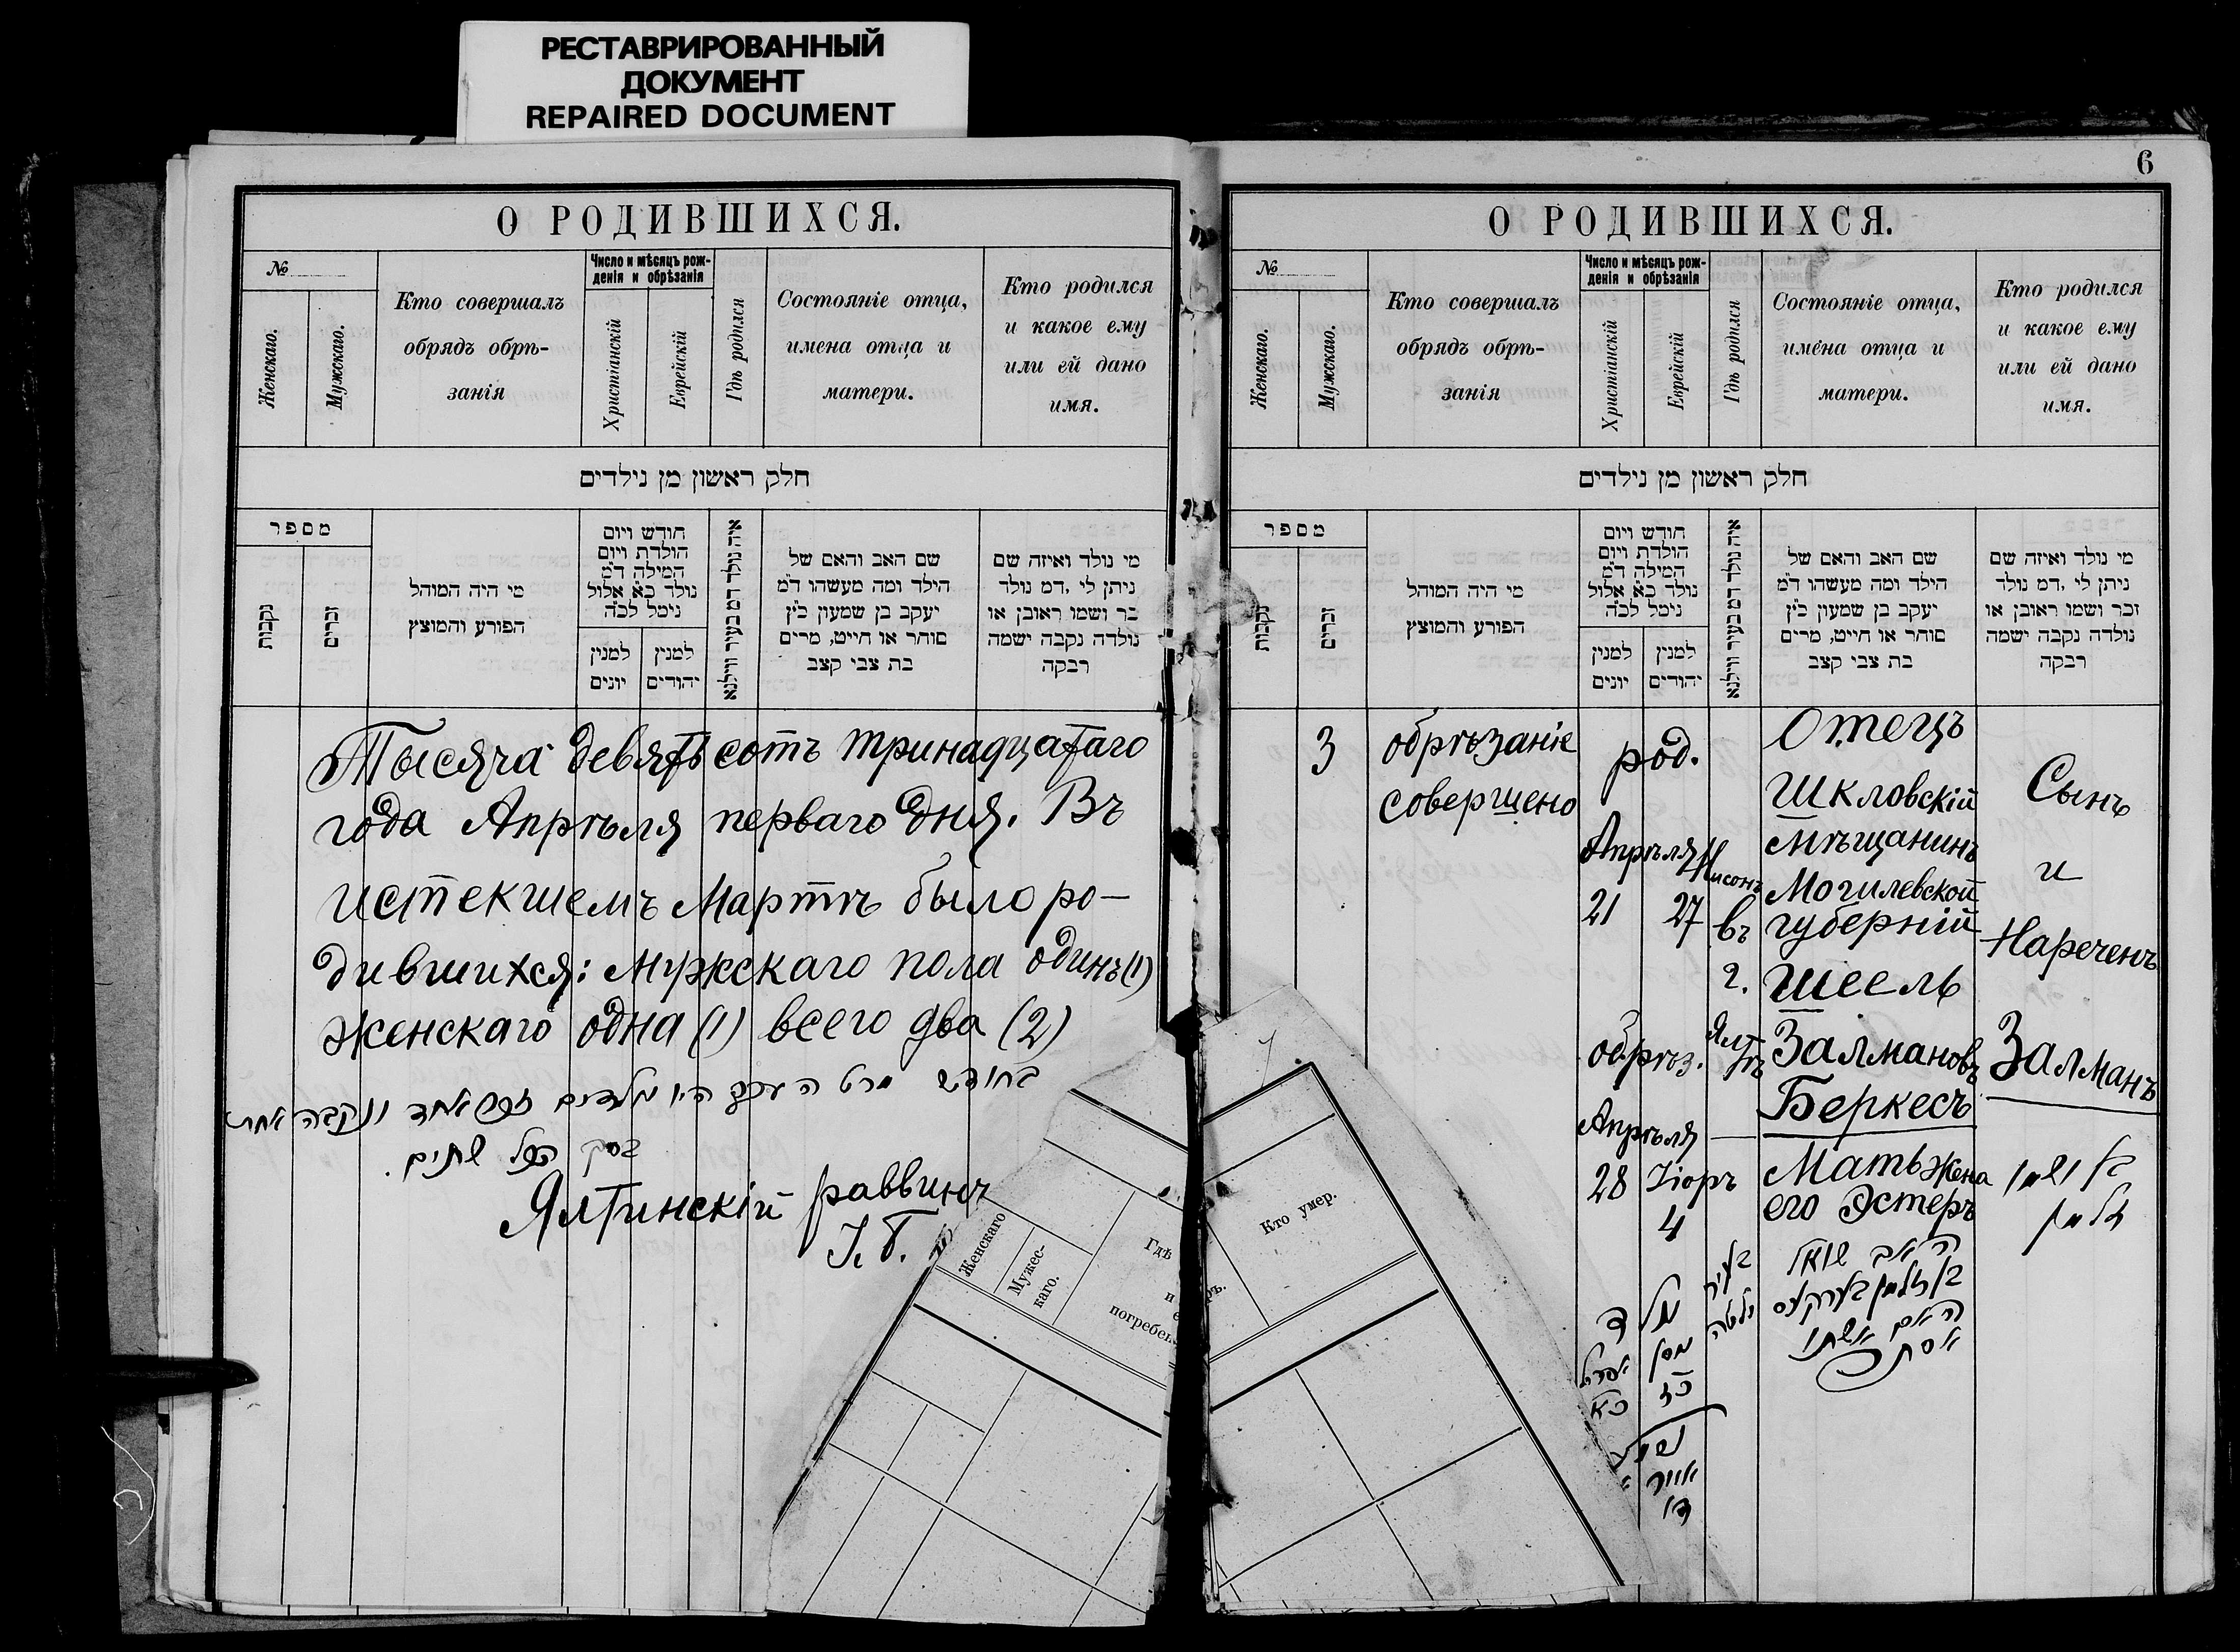 РЕСТАВРИРОВАННЫЙ
ДОКУМЕНТ
REPAIRED DOCUMENT
О РОДИВШИХСЯ.
№
Женскаго.
Мужскаго.
Кто совершалъ
обрядъ обрѣ-
занія
Число и мѣсяцъ рож-
денія и обрѣзанія
Христіанскій
Еврейскій
Гдѣ родился
Состояніе отца,
имена отца и
матери.
Кто родился
и какое ему
или ей дано
имя.
חלק ראשון מן נילדים
מספר
נקבות
זכרים
מי היה המוהל
הפורע והמוצץ
חודש ויום
הולדת ויום
המילה ד״מ
נולד כ״א אלול
נימל לכ״ה
למנין
יונים
למנין
יהודים
איה נולד דמ בעיר ווילנא
שם האב והאם של
הילד ומה מעשהו ד״מ
יעקב בן שמעון כ״ץ
סוחר או חייט, מרים
בת צבי קצב
מי נולד ואיזה שם
ניתן לי, דמ נולד
זכר ושמו ראובן או
נולדה נקבה ישמה
רבקה
Тысяча девятьсотъ тринадцатаго
года Апрѣля перваго дня. Въ
истекшемъ Мартѣ было ро-
дившихся: Мужскаго пола одинъ (1)
женскаго одна (1) всего два (2)
בחודש מרט העבר היו נולדים זכר אחד ונקבה אחת
בסך הכל שתים.
Ялтинскій раввинъ
Женскаго
Мужес-
каго.
Гдѣ
и
погребен
ръ.
Кто умер.
6
О РОДИВШИХСЯ.
№
Женскаго.
Мужскаго.
Кто совершалъ
обрядъ обрѣ-
занія
Число и мѣсяцъ рож-
денія и обрѣзанія
Христіанскій
Еврейскій
Гдѣ родился
Состояніе отца,
имена отца и
матери.
Кто родился
и какое ему
или ей дано
имя.
חלק ראשון מן נילדים
מספר
נקבות
זכרים
מי היה המוהל
הפורע והמוצץ
חודש ויום
הולדת ויום
המילה ד״מ
נולד כ״א אלול
נימל לכ״ה
למנין
יונים
למנין
יהודים
איה נולד דמ בעיר ווילנא
שם האב והאם של
הילד ומה מעשהו ד״מ
יעקב בן שמעון כ״ץ
סוחר או חייט, מרים
בת צבי קצב
מי נולד ואיזה שם
ניתן לי, דמ נולד
זכר ושמו ראובן או
נולדה נקבה ישמה
רבקה
3
обрѣзаніе
совершено
род.
Апрѣля
21
Нисонъ
27
обрѣз.
Апрѣля
28
Іюръ
4
נולד
אפריל
כא
ניסן
כז
אייר
ד׳
въ
г.
Ялтѣ
בעיר
ילטה
Отецъ
Шкловскій
Мѣщанинъ
Могилевской
губерній
Шеель
Залмановъ
Беркесъ
Мать жена
его Эстеръ
האב שואל
בן זלמן בערקעס
האם אשתו
אסתר
Сынъ
и
Нареченъ
Залманъ
בן ושמו
זלמן